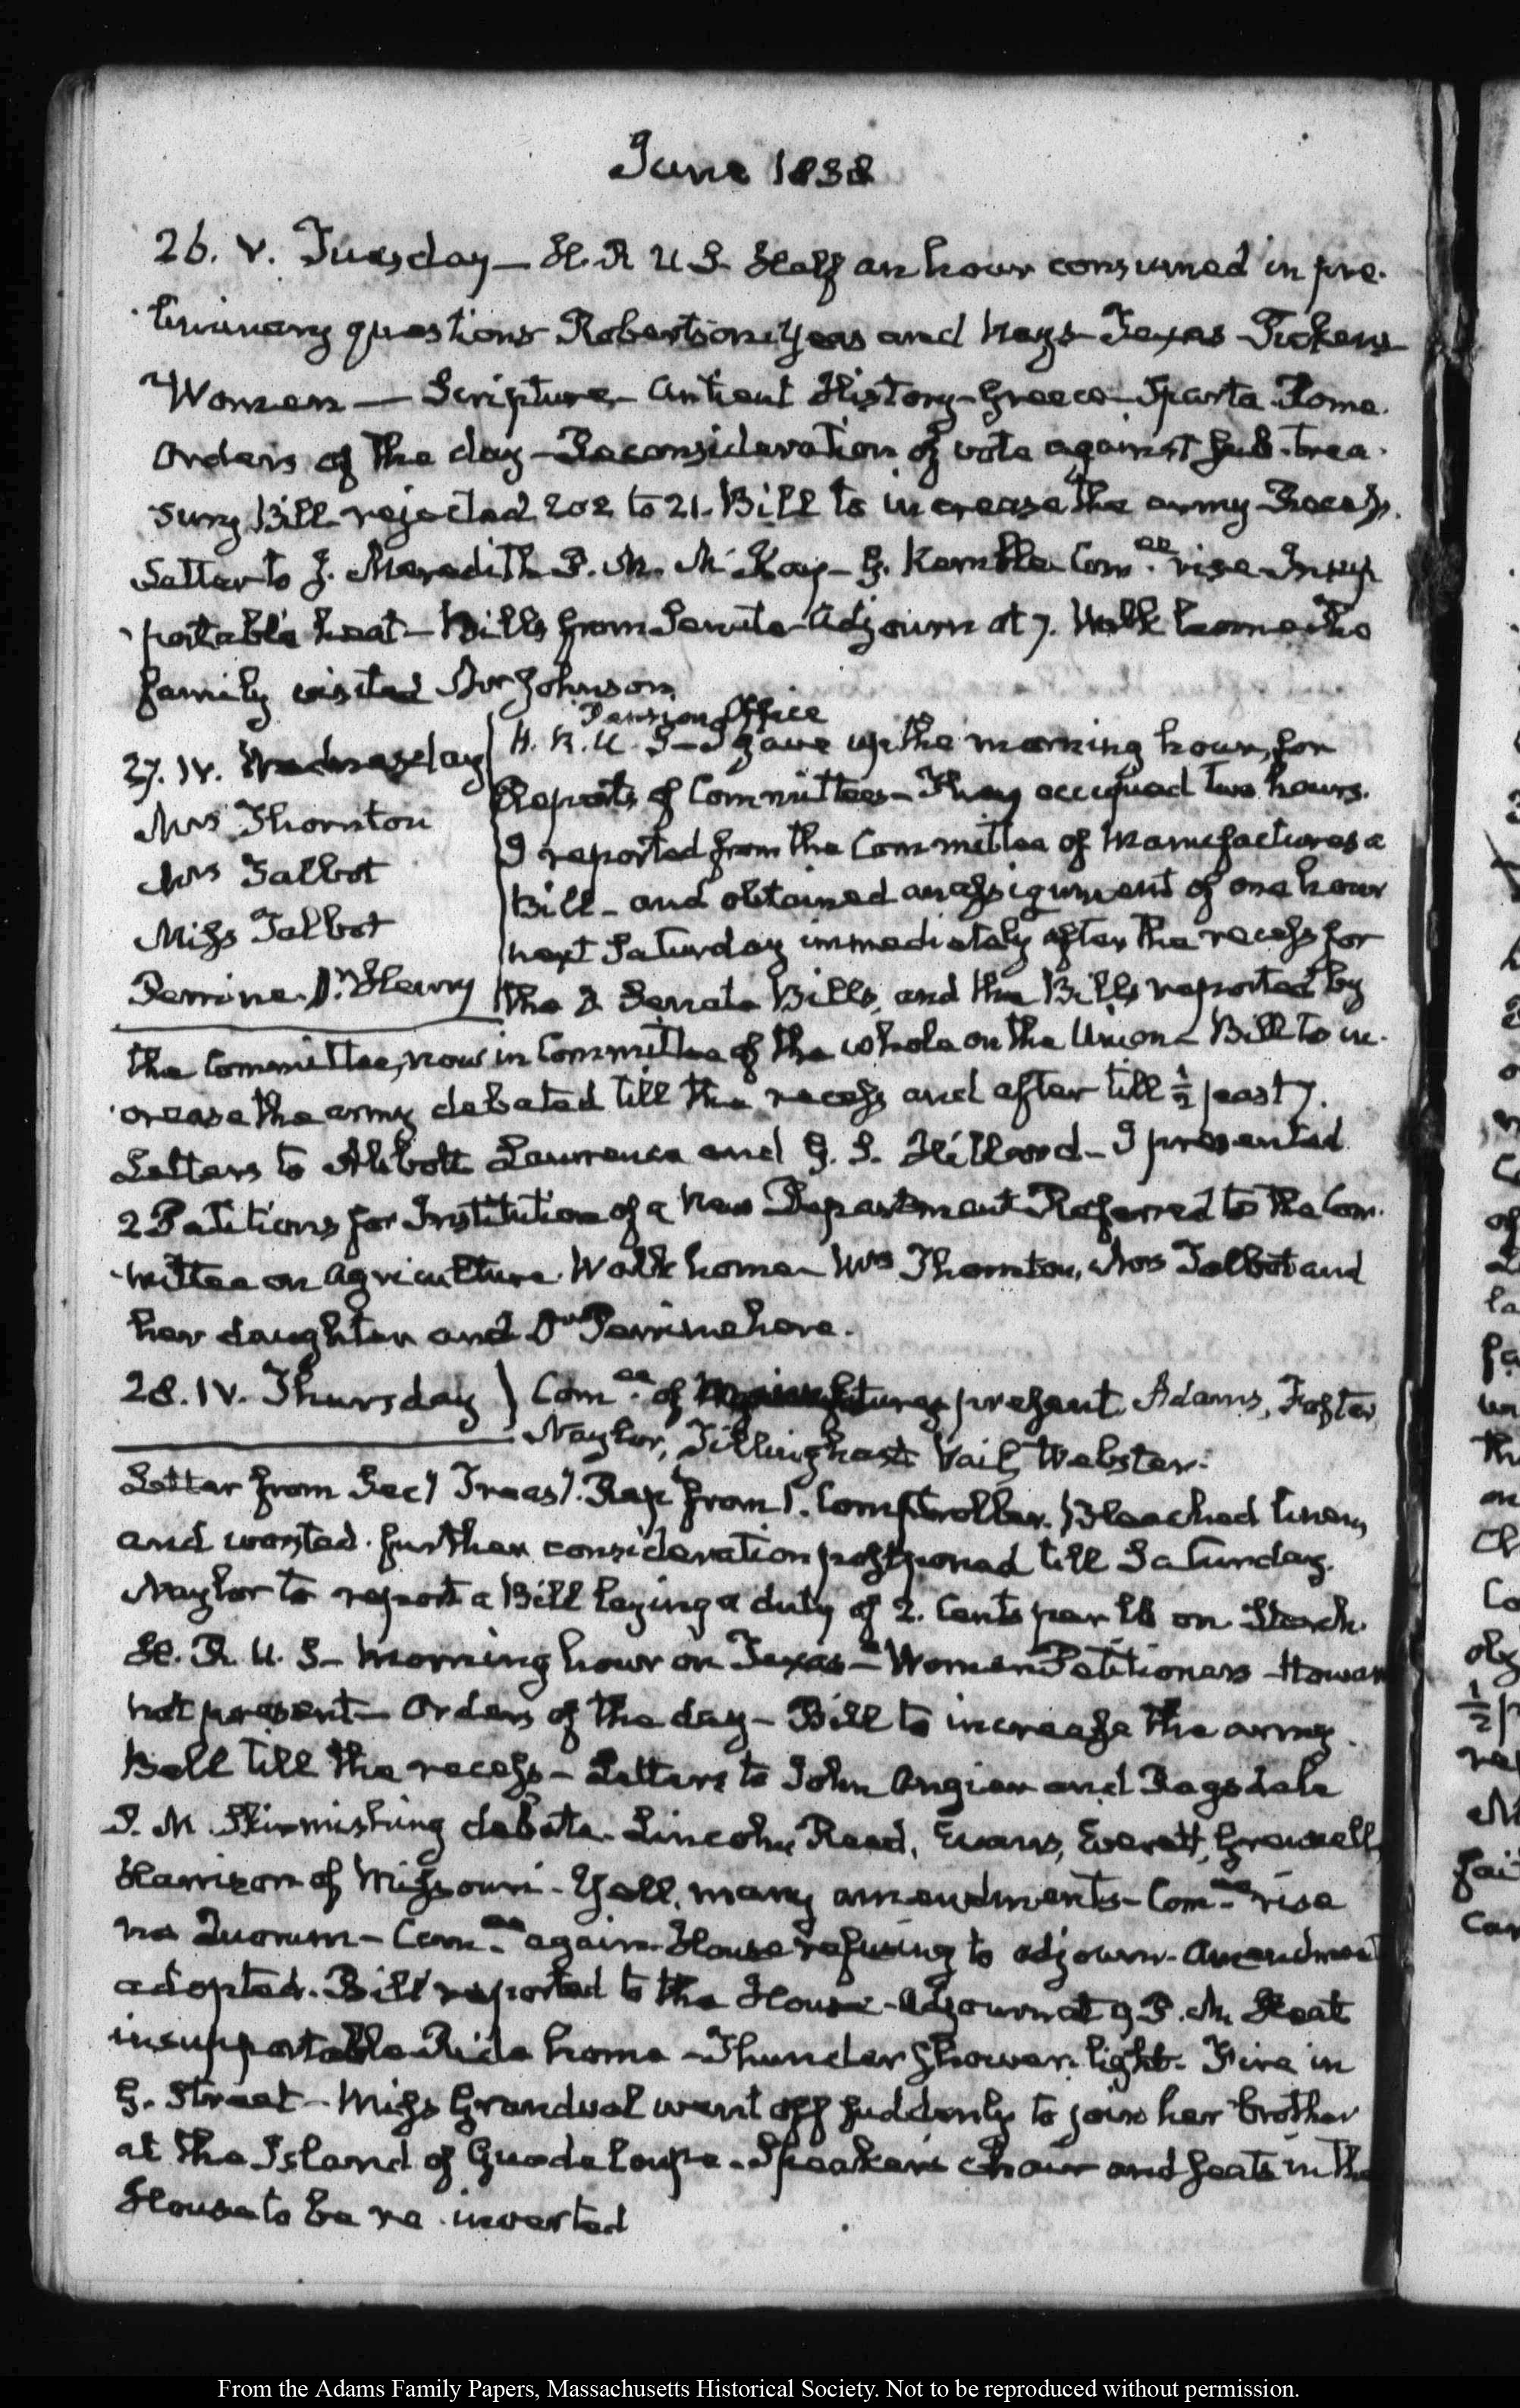 June 1838
26. V. Tuesday — H. R U S. Half an hour consumed in pre-
liminary questions Robertson Yeas and Nays – Texas – Pickens
Women — Scripture – Antient History – Greece – Sparta – Rome.
Orders of the day – Reconsideration of vote against Sub-trea-
sury Bill rejected 202 to 21. Bill to increase the army – Recess.
Letter to J. Meredith P. M. McKay – G. Kemble Com.ee rise – Insup-
portable heat – Bills from Senate – Adjourn at 7. Walk home – the
family visited Mrs Johnson
27. IV. Wednesday
Mrs Thornton
Mrs Talbot
Miss Talbot
Perrine. Dr. Henry
Pension Office
H. R. U. S – I gave up the morning hour, for
Reports of Committees – They occupied two hours.
I reported from the Committee of Manufactures a
Bill – and obtained an assignment of one hour
next Saturday immediately after the recess for
the 2 Senate Bills, and the Bills reported by
the Committee, now in Committee of the whole on the Union – Bill to in-
crease the army debated till the recess and after till ½ past 7.
Letters to Abbott Lawrence and G. S. Hillard – I presented
2 Petitions for Institution of a New Department Referred to the Com-
mittee on Agriculture. Walk home – Mrs Thornton, Mrs Talbot and
her daughter and Dr Perrine here.
28. IV. Thursday } Com.ee of Manufactures present Adams, Foster,
Naylor, Tillinghast Vail, Webster.
Letter from Secy Treasy. Rep from 1. Comptroller. Bleached linens
and worsted. further consideration postponed till Saturday.
Naylor to report a Bill laying a duty of 2. Cents per lb on Starch.
H. R. U. S – Morning hour on Texas – Women Petitioners – Howard
not present – Orders of the day – Bill to increase the army.
Bell till the recess – Letters to John Angier and Ragsdale
P. M. Skirmishing debate – Lincoln, Reed, Evans, Everett, Grennell,
Harrison of Missouri – Yell, many amendments – Com.ee rise
no Quorum – Com.ee again – House refusing to adjourn – Amendment
adopted. Bill reported to the House – Adjourn at 9 P. M. Heat
insupportable Ride home – Thunder Shower light. Fire in
G. Street – Miss Grandval went off suddenly to join her brother
at the Island of Guadeloupe. Speaker's Chair and seats in the
House to be re-inverted
From the Adams Family Papers, Massachusetts Historical Society. Not to be reproduced without permission.